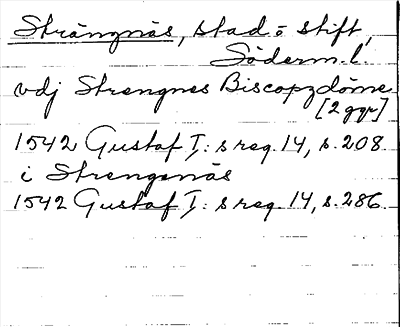 Strängnäs, stad o stift,
Söderm. l.
vdj Strengnes Biscopzdöme
[2 ggr]
1542 Gustaf I: s reg. 14, s. 208
i Strengenäs
1542 Gustaf I: s reg. 14, s. 286